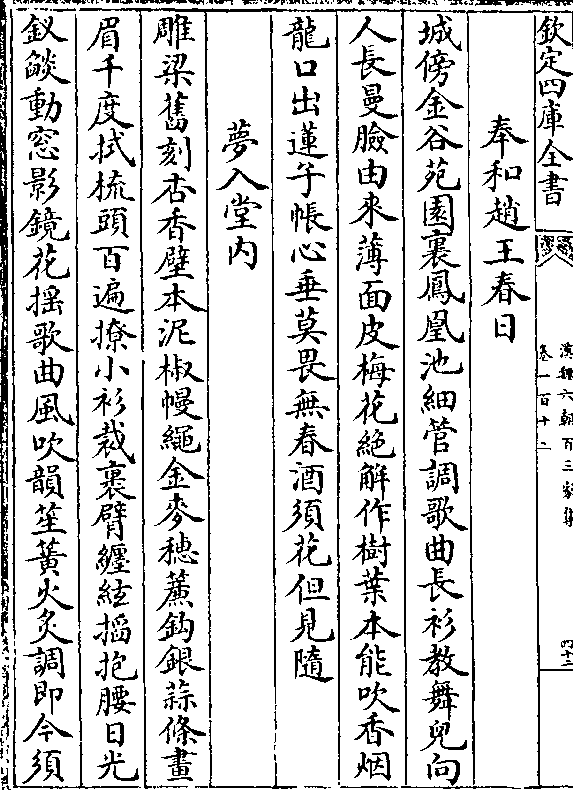 欽定四庫全書
漢魏六朝百三家集
卷一百十二
四十三
奉和趙王春日
城傍金谷苑園裏鳳凰池細管調歌曲長衫教舞兒向
人長曼臉由來薄面皮梅花絶解作樹葉本能吹香烟
龍口出蓮子帳心垂莫畏無春酒須花但見隨
夢入堂内
雕梁舊刻杏香壁本泥椒幔繩金麥穂簾鈎銀蒜條畫
眉千度拭梳頭百遍撩小衫裁裹臂纏絃搯抱腰日光
釵燄動窓影鏡花揺歌曲風吹韻笙簧火炙調即今須